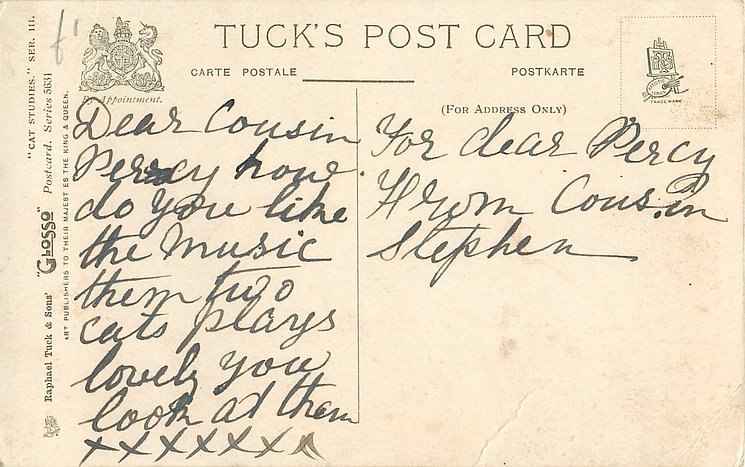 TUCK'S POST CARD
CARTE POSTALE
POSTKARTE
By Appointment.
(FOR ADDRESS ONLY)
TRADE MARK
"CAT STUDIES." SER. III.
"GLOSSO" Postcard. Series 5631
Raphael Tuck & Sons'
ART PUBLISHERS TO THEIR MAJESTIES THE KING & QUEEN.
Dear Cousin
Percy how
do you like
the music
them two
cats plays
lovely you
look at them
xxxxxxx
For dear Percy
From Cousin
Stephen